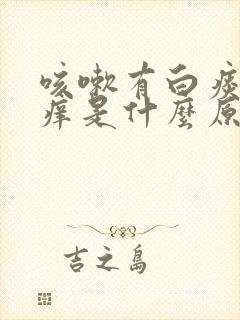 咳嗽有白痰
痒是什麼原
吉之島